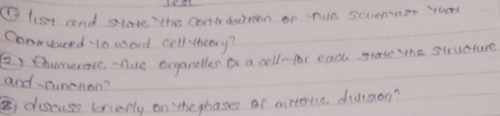 Test
① list and state the contribution of five scientist that
Contributed to word cell theory?
2) Enumerate five organelles of a cell for each state the structure
and function?
③ discuss briefly on the phases of mitotic division?